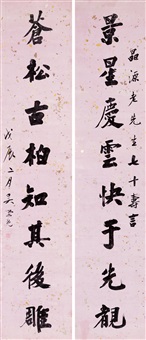 品源老先生七十壽言
景星慶雲快于先覩
蒼松古柏知其後雕
戊辰二月吳